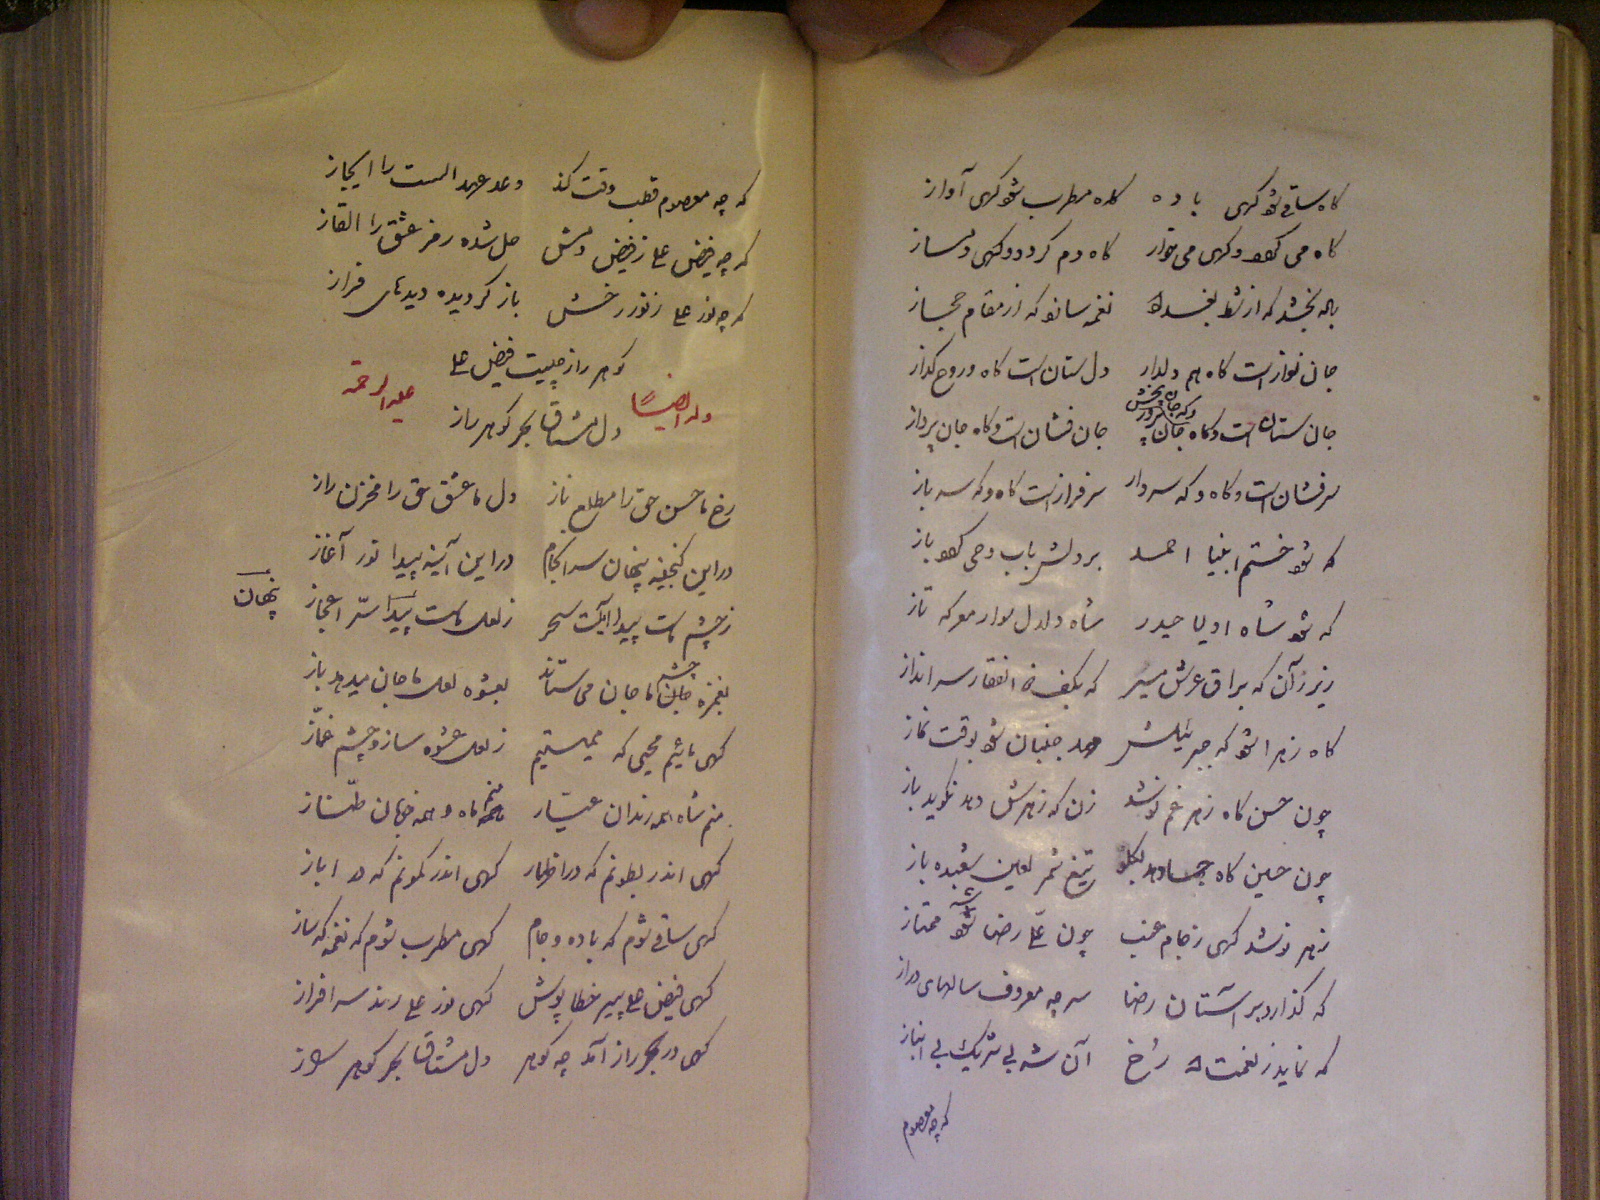 گاه ساقی شو گهی باده گاه مطرب شو گهی آواز
گاه می گردد و گهی می خوار گاه دم گردد و گهی دمساز
باله بخشد که از شط بغداد نغمه سازد که از مقام حجاز
جان نواز است گاه هم دلدار دل ستان است گاه و روح گداز
وگه جان بخش
جان ستان است و گاه جان پرور جان فشان است و گاه جان پرداز
سرفشان است و گاه و گه سردار سرفراز است گاه و گه سرباز
که شود ختم انبیا احمد بر دلش باب وحی گردد باز
که شود شاه اولیا حیدر شاه دلدل سوار معرکه تاز
زیر ران که براق عرش مسیر که بکف ذوالفقار سرانداز
گاه زهرا شود که جبرئیلش مهد جنبان شود بوقت نماز
چون حسن گاه زهر غم نوشد زن که زهرش دهد نگوید باز
چون حسین گاه جا دهد بگلو تیغ شمر لعین شعبده باز
زهر نوشد گهی ز جام عنب چون علی رضا شه ممتاز
که گذارد بر آستان رضا سر چه معروف سالهای دراز
که نماید ز نعمت الله رخ آن شه بی شریک بی انباز
که چه معصوم
که چه معصوم قطب وقت کند وعد عهد الست را ایجاز
که چه فیض علی ز فیض دمش حل شده رمز عشق را الغاز
که چه نور علی ز نور رخش باز گردیده دیدهای فراز
گوهر راز چیست فیض علی
دل مشتاق بحر گوهر راز
وله ایضاً
علیه الرحمة
رخ ما حسن حق را مطلع ناز دل ما عشق حق را مخزن راز
در این گنجینه پنهان سر انجام در این آینه پیدا نور آغاز
ز چشم ماست پیدا آیت سحر ز لعل ماست پیدا سرّ اعجاز
پنهان
بغمزه چشم ما جان می ستاند بعشوه لعل ما جان میدهد باز
گهی مائیم محیی که ممیتیم ز لعل عشوه ساز و چشم غمّاز
منم شاه همه رندان عیّار منم ماه و همه خوبان طنّاز
گهی اندر بطونم که در اظهار گهی اندر کمونم که در ابراز
گهی ساقی شوم که باده و جام گهی مطرب شوم که نغمه که ساز
گهی فیض علی پیر خطا پوش گهی نور علی رند سرافراز
گهی در بحر راز آمد چه گوهر دل مشتاق بحر گوهر راز